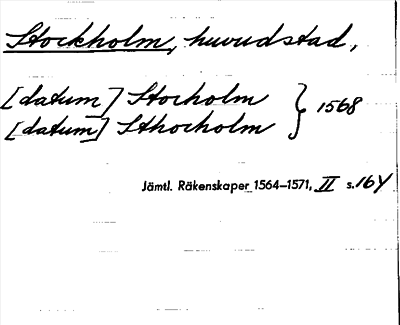 Stockholm, huvudstad,
[datum] Stocholm } 1568
[datum] Sthocholm
Jämtl. Räkenskaper 1564–1571, II s. 164